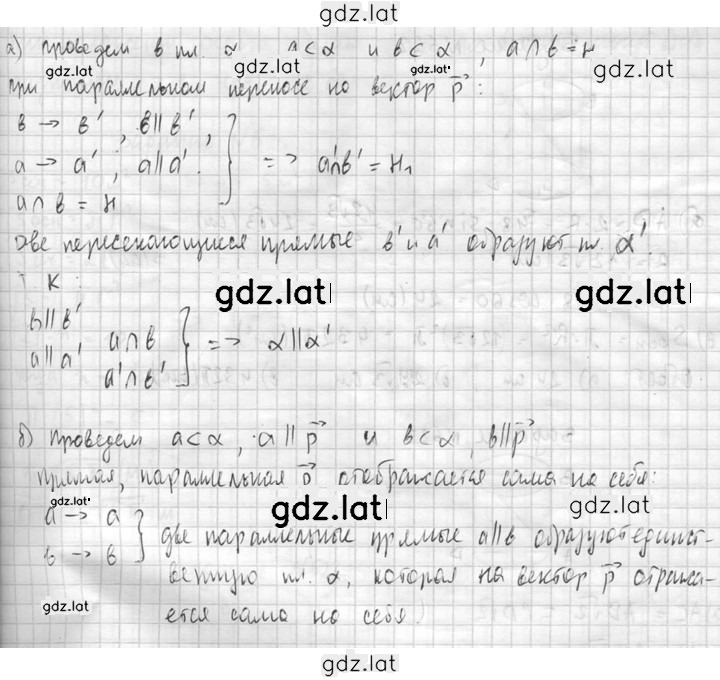 gdz.lat
а) проведем в пл. α a⊂α и в⊂α, a∩в=H
gdz.lat gdz.lat gdz.lat gdz.lat
при параллельном переносе на вектор p⃗:
в → в' , в∥в' ,
a → a' , a∥a'. } => a'∩в' = H₁
a∩в = H
две пересекающиеся прямые в' и a' образуют пл. α'
т.к:
gdz.lat gdz.lat
в∥в'
a∥a' a∩в
a'∩в' } => α∥α'
б) проведем a⊂α, a∥p⃗ и в⊂α, в∥p⃗
прямая, параллельная p⃗ отображается сама на себя:
gdz.lat gdz.lat gdz.lat
a → a
в → в } две параллельные прямые a∥в образуют единст-
венную пл. α, которая на вектор p⃗ отража-
gdz.lat
ется сама на себя.
gdz.lat